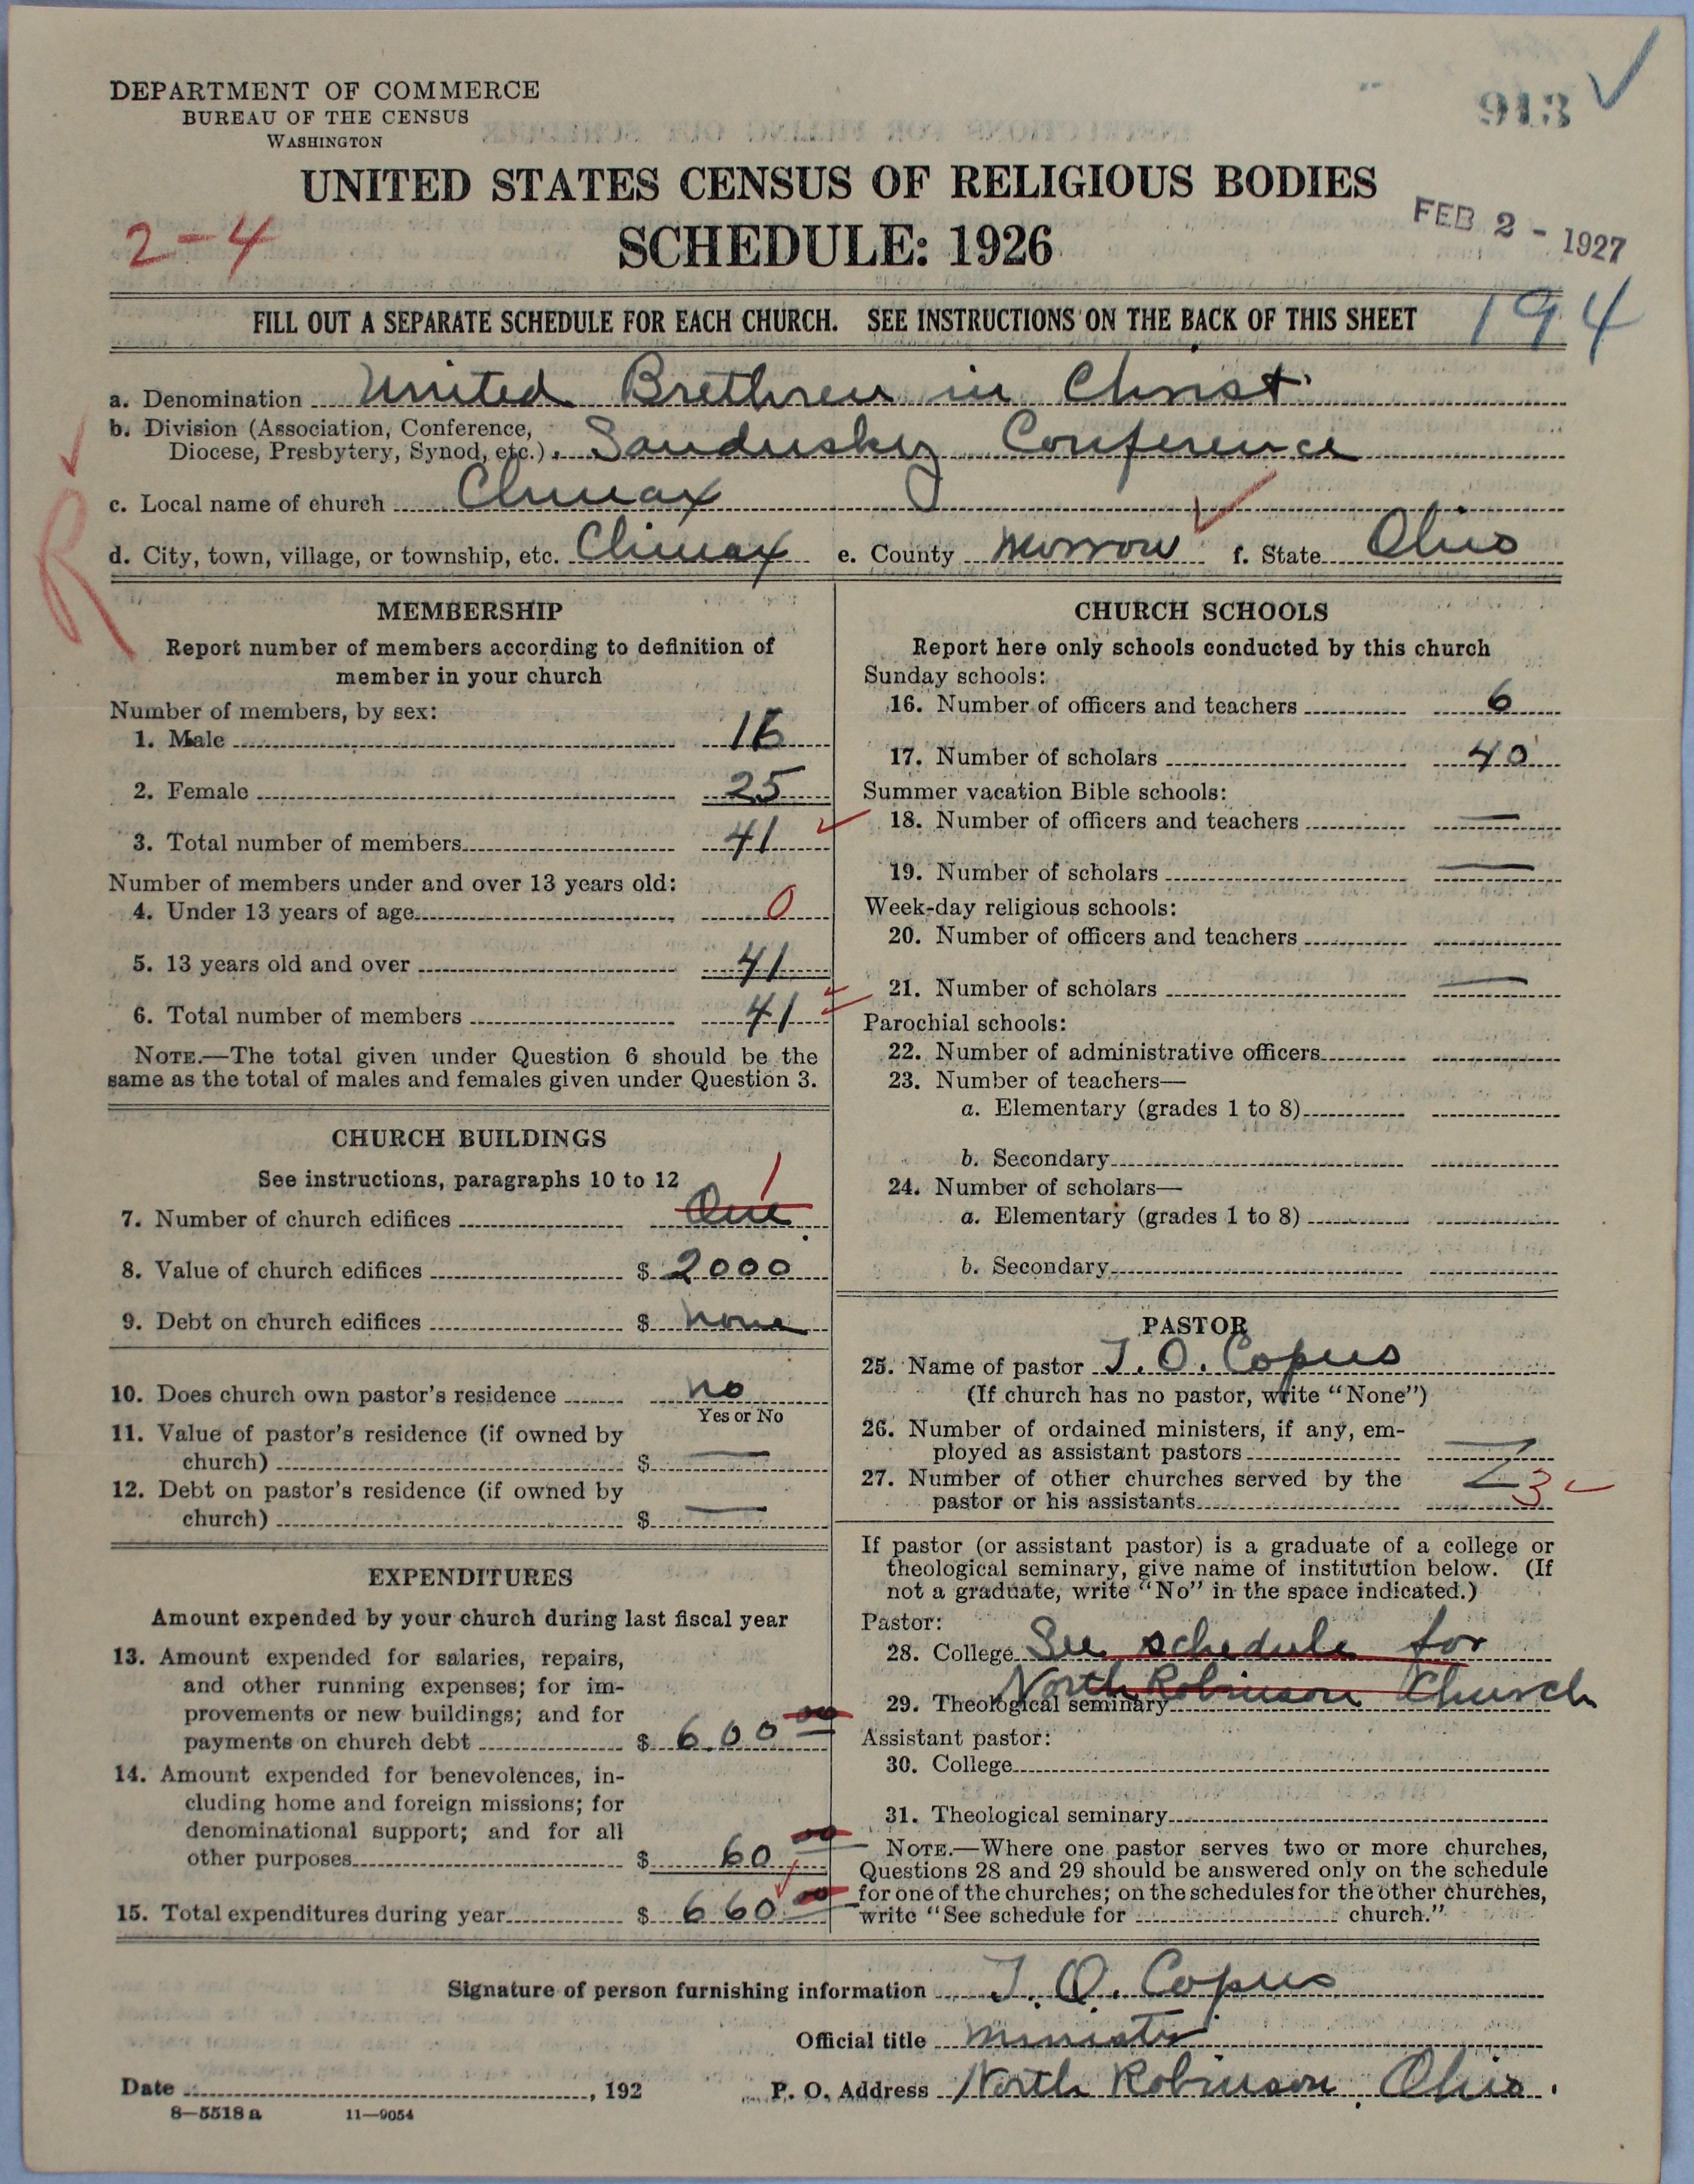 DEPARTMENT OF COMMERCE
BUREAU OF THE CENSUS
WASHINGTON
913
UNITED STATES CENSUS OF RELIGIOUS BODIES
SCHEDULE: 1926
2-4
FEB 2 - 1927
FILL OUT A SEPARATE SCHEDULE FOR EACH CHURCH. SEE INSTRUCTIONS ON THE BACK OF THIS SHEET
194
a. Denomination United Brethren in Christ
b. Division (Association, Conference,
Diocese, Presbytery, Synod, etc.) Sandusky Conference
c. Local name of church Climax
d. City, town, village, or township, etc. Climax e. County Morrow f. State Ohio
R
MEMBERSHIP
Report number of members according to definition of
member in your church
Number of members, by sex:
1. Male 16
2. Female 25
3. Total number of members 41
Number of members under and over 13 years old:
4. Under 13 years of age 0
5. 13 years old and over 41
6. Total number of members 41
NOTE.—The total given under Question 6 should be the
same as the total of males and females given under Question 3.
CHURCH BUILDINGS
See instructions, paragraphs 10 to 12
1
7. Number of church edifices One
8. Value of church edifices $ 2000
9. Debt on church edifices $ none
10. Does church own pastor's residence no
Yes or No
11. Value of pastor's residence (if owned by
church) $ —
12. Debt on pastor's residence (if owned by
church) $ —
EXPENDITURES
Amount expended by your church during last fiscal year
13. Amount expended for salaries, repairs,
and other running expenses; for im-
provements or new buildings; and for
payments on church debt $ 600 00
14. Amount expended for benevolences, in-
cluding home and foreign missions; for
denominational support; and for all
other purposes $ 60 00
15. Total expenditures during year $ 660 00
CHURCH SCHOOLS
Report here only schools conducted by this church
Sunday schools:
16. Number of officers and teachers 6
17. Number of scholars 40
Summer vacation Bible schools:
18. Number of officers and teachers —
19. Number of scholars —
Week-day religious schools:
20. Number of officers and teachers
21. Number of scholars —
Parochial schools:
22. Number of administrative officers
23. Number of teachers—
a. Elementary (grades 1 to 8)
b. Secondary
24. Number of scholars—
a. Elementary (grades 1 to 8)
b. Secondary
PASTOR
25. Name of pastor J. O. Copus
(If church has no pastor, write "None")
26. Number of ordained ministers, if any, em-
ployed as assistant pastors
27. Number of other churches served by the
pastor or his assistants 3
If pastor (or assistant pastor) is a graduate of a college or
theological seminary, give name of institution below. (If
not a graduate, write "No" in the space indicated.)
Pastor:
28. College See schedule for
29. Theological seminary North Robinson Church
Assistant pastor:
30. College
31. Theological seminary
NOTE.—Where one pastor serves two or more churches,
Questions 28 and 29 should be answered only on the schedule
for one of the churches; on the schedules for the other churches,
write "See schedule for church."
Signature of person furnishing information J. O. Copus
Official title minister
Date , 192 P. O. Address North Robinson, Ohio.
8—5518 a 11—9054